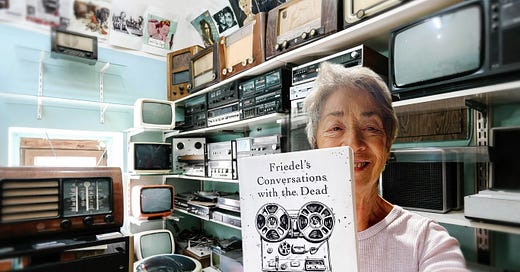 Friedel's
Conversations
with the Dead